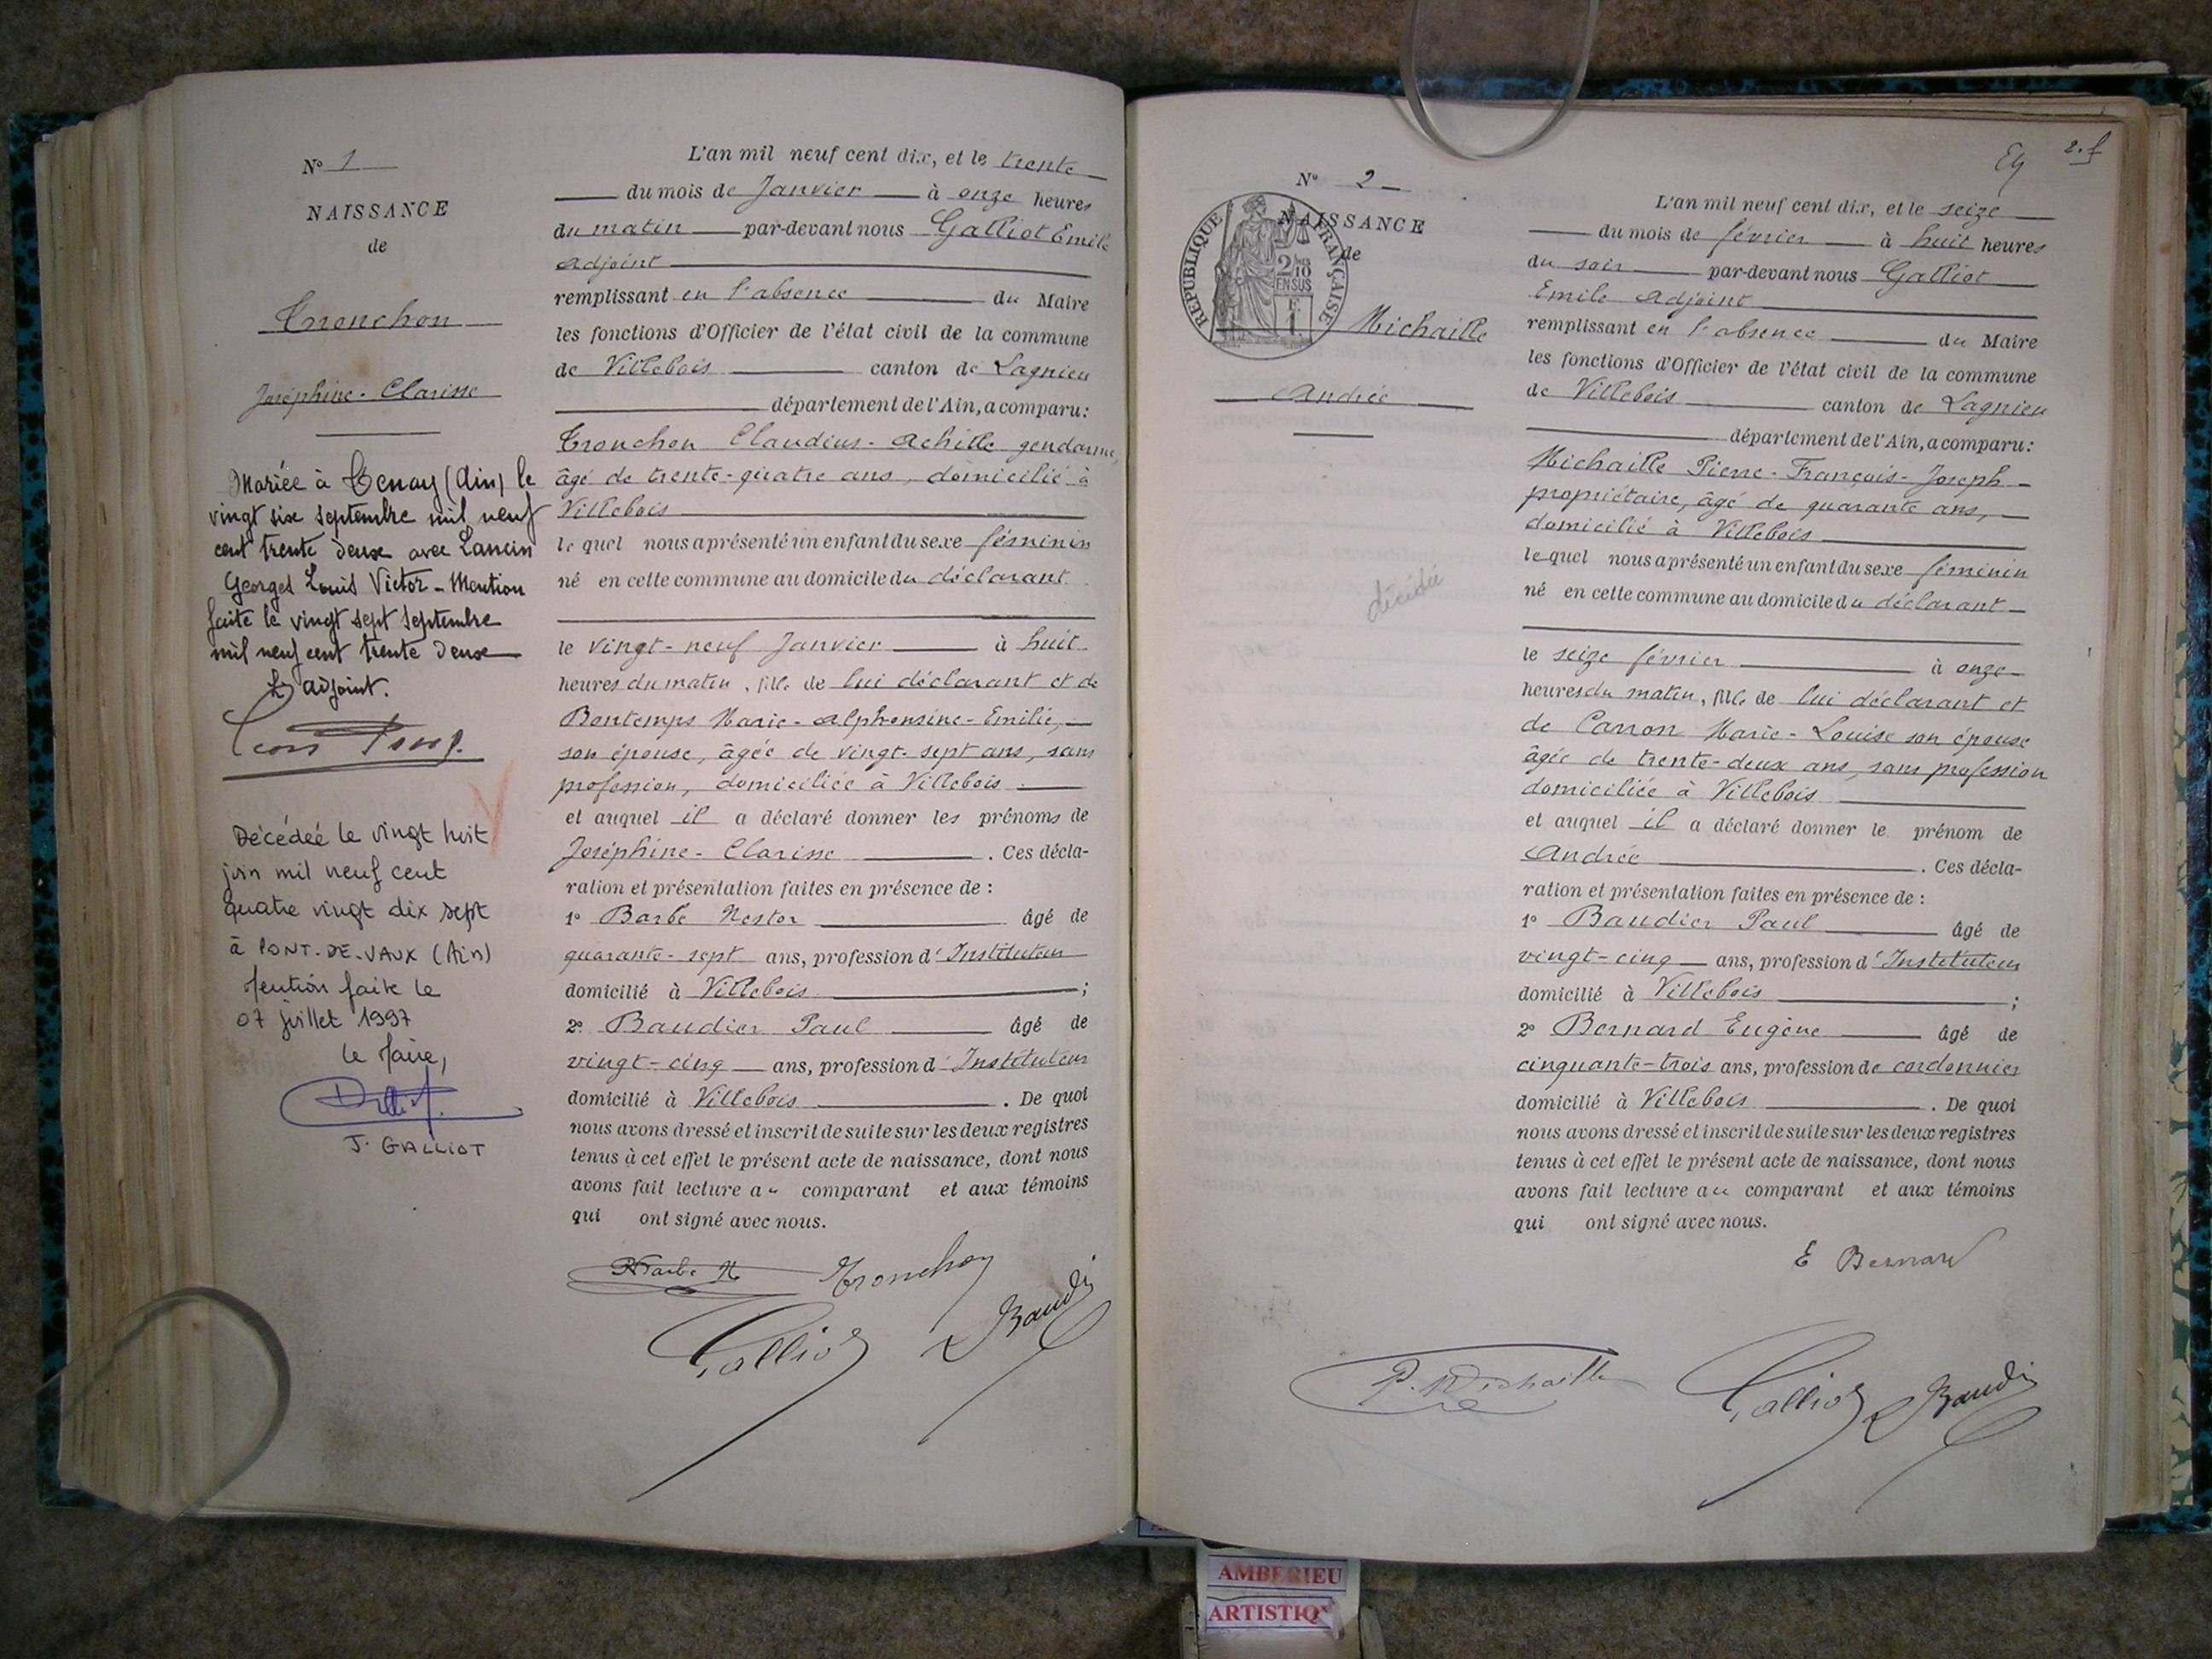 N° 1
NAISSANCE
de
Tronchon
Joséphine-Clarisse
Mariée à Tenay (Ain) le
vingt six septembre mil neuf
cent trente deux avec Lancin
Georges Louis Victor - Mention
faite le vingt sept septembre
mil neuf cent trente deux
L'adjoint.
Décédée le vingt huit
juin mil neuf cent
quatre vingt dix sept
à PONT-DE-VAUX (Ain)
Mention faite le
07 juillet 1997
Le Maire,
J. GALLIOT
L'an mil neuf cent dix, et le trente
du mois de Janvier à onze heures
du matin par-devant nous Galliot Emile
Adjoint
remplissant en l'absence du Maire
les fonctions d'Officier de l'état civil de la commune
de Villebois canton de Lagnieu
département de l'Ain, a comparu:
Tronchon Claudius-Achille gendarme,
âgé de trente-quatre ans, domicilié à
Villebois
lequel nous a présenté un enfant du sexe féminin
né en cette commune au domicile du déclarant
le vingt-neuf Janvier à huit
heures du matin, fille de lui déclarant et de
Bontemps Marie-Alphonsine-Emilie,
son épouse, âgée de vingt-sept ans, sans
profession, domiciliée à Villebois.
et auquel il a déclaré donner les prénoms de
Joséphine-Clarisse. Ces décla-
ration et présentation faites en présence de :
1° Barbe Nestor âgé de
quarante-sept ans, profession d'Instituteur
domicilié à Villebois ;
2° Baudier Paul âgé de
vingt-cinq ans, profession d'Instituteur
domicilié à Villebois. De quoi
nous avons dressé et inscrit de suite sur les deux registres
tenus à cet effet le présent acte de naissance, dont nous
avons fait lecture au comparant et aux témoins
qui ont signé avec nous.
Barbe N Tronchon
Galliot Baudier
2.f
N° 2
NAISSANCE
de
REPUBLIQUE FRANÇAISE
2/10 EN SUS
E.
1.
Michaille
Andrée
décédée
L'an mil neuf cent dix, et le seize
du mois de février à huit heures
du soir par-devant nous Galliot
Emile Adjoint
remplissant en l'absence du Maire
les fonctions d'Officier de l'état civil de la commune
de Villebois canton de Lagnieu
département de l'Ain, a comparu:
Michaille Pierre-François-Joseph
propriétaire, âgé de quarante ans,
domicilié à Villebois
lequel nous a présenté un enfant du sexe féminin
né en cette commune au domicile du déclarant
le seize février à onze
heures du matin, fille de lui déclarant et
de Carron Marie-Louise son épouse
âgée de trente-deux ans, sans profession
domiciliée à Villebois
et auquel il a déclaré donner le prénom de
Andrée. Ces décla-
ration et présentation faites en présence de :
1° Baudier Paul âgé de
vingt-cinq ans, profession d'Instituteur
domicilié à Villebois ;
2° Bernard Eugène âgé de
cinquante-trois ans, profession de cordonnier
domicilié à Villebois. De quoi
nous avons dressé et inscrit de suite sur les deux registres
tenus à cet effet le présent acte de naissance, dont nous
avons fait lecture au comparant et aux témoins
qui ont signé avec nous.
E Bernard
P. Michaille Galliot Baudier
AMBERIEU
ARTISTIQ